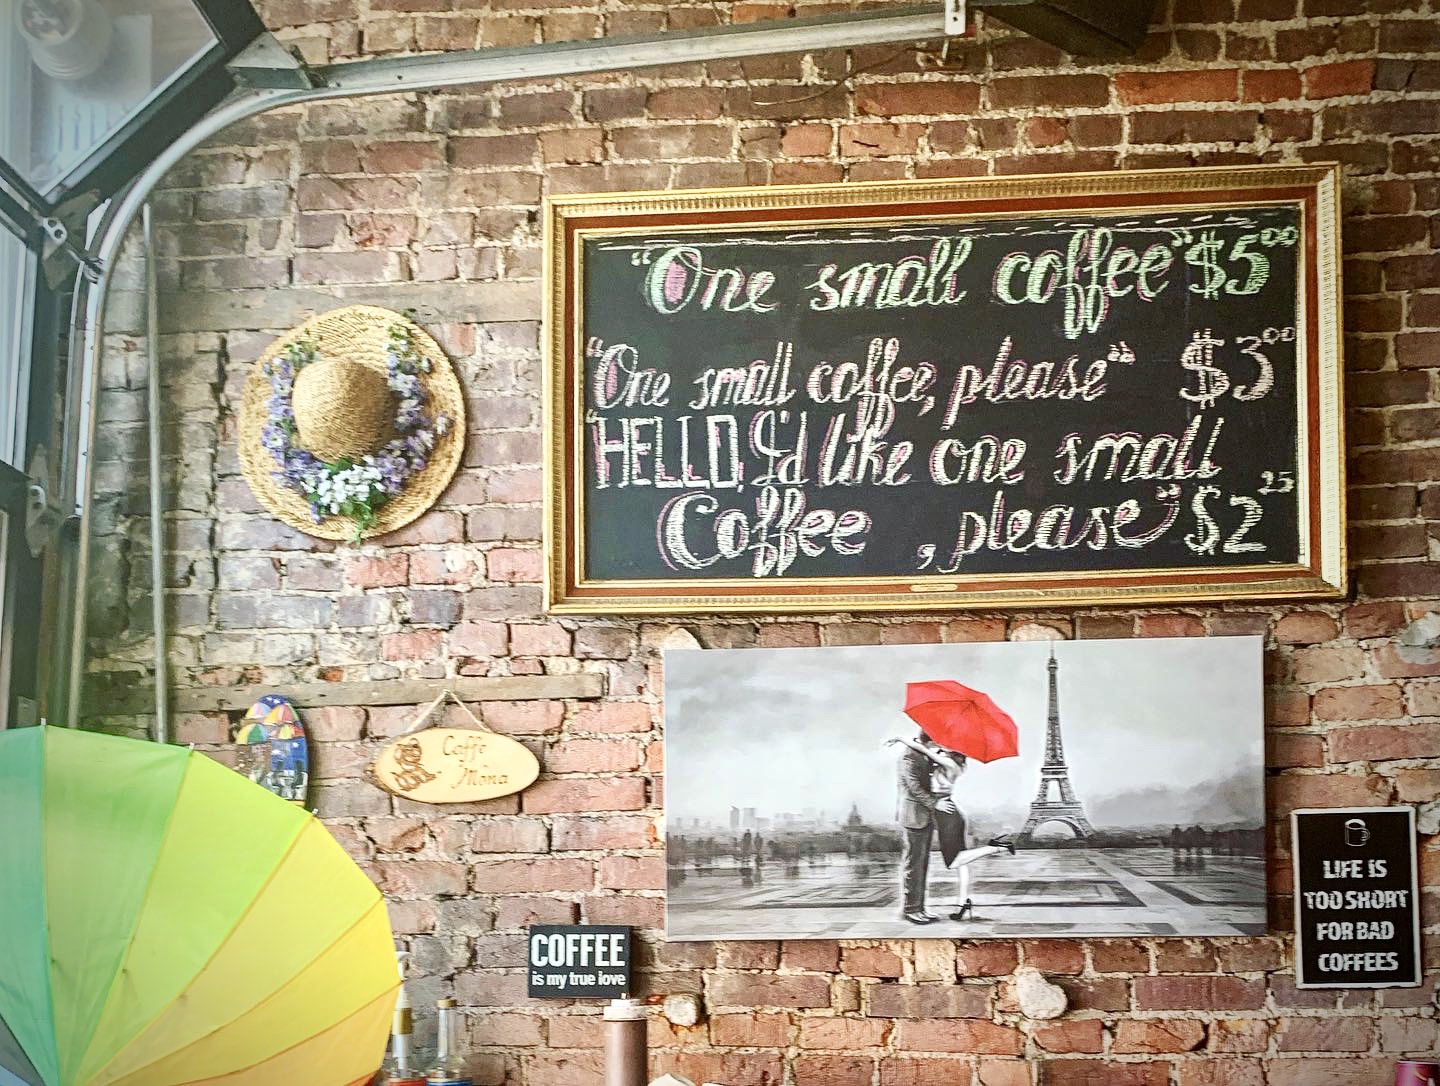 "One small coffee" $5⁰⁰
"One small coffee, please" $3⁰⁰
"HELLO, I'd like one small
Coffee, please" $2²⁵
Caffè
Mona
COFFEE
is my true love
LIFE IS
TOO SHORT
FOR BAD
COFFEES